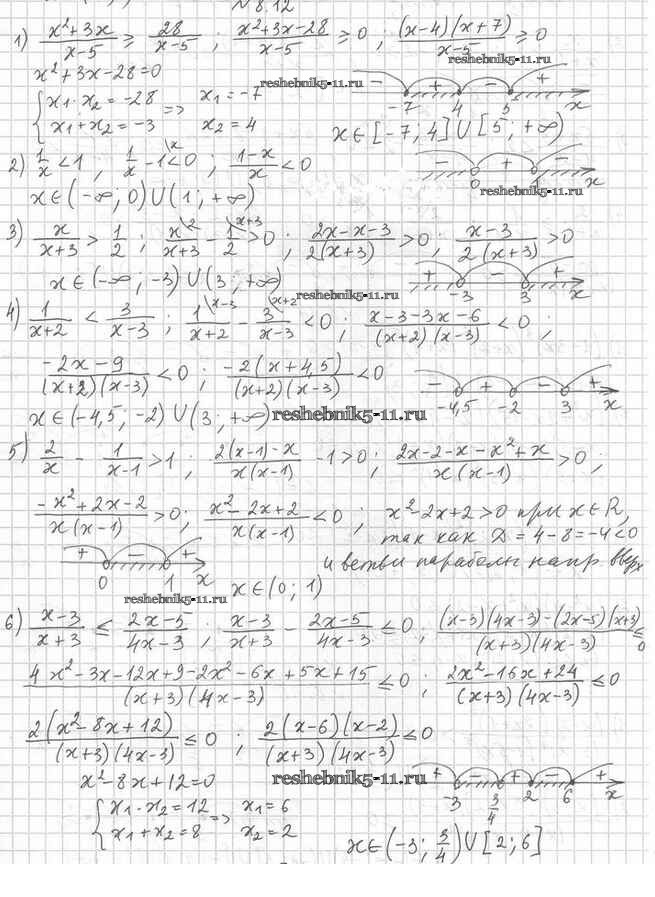 N 8.12
1) (x²+3x)/(x-5) ≥ 28/(x-5) ; (x²+3x-28)/(x-5) ≥ 0 ; (x-4)(x+7)/(x-5) ≥ 0
x²+3x-28=0
reshebnik5-11.ru
{ x₁·x₂ = -28 => x₁ = -7
x₁+x₂ = -3 x₂ = 4
- + - +
-7 4 5 x
x∈[-7;4]∪[5;+∞)
2) 1/x < 1 , 1/x - 1\x < 0 ; (1-x)/x < 0
- + -
0 1 x
reshebnik5-11.ru
x∈(-∞;0)∪(1;+∞)
3) x/(x+3) > 1/2 ; x\2/(x+3) - 1\x+3/2 > 0 ; (2x-x-3)/(2(x+3)) > 0 ; (x-3)/(2(x+3)) > 0
x∈(-∞;-3)∪(3;+∞)
+ - +
-3 3 x
reshebnik5-11.ru
4) 1/(x+2) < 3/(x-3) ; 1\x-3/(x+2) - 3\x+2/(x-3) < 0 ; (x-3-3x-6)/((x+2)(x-3)) < 0 ;
(-2x-9)/((x+2)(x-3)) < 0 ; -2(x+4,5)/((x+2)(x-3)) < 0
- + - +
-4,5 -2 3 x
x∈(-4,5;-2)∪(3;+∞)
reshebnik5-11.ru
5) 2/x - 1/(x-1) > 1 ; (2(x-1)-x)/(x(x-1)) - 1 > 0 ; (2x-2-x-x²+x)/(x(x-1)) > 0 ;
(-x²+2x-2)/(x(x-1)) > 0 ; (x²-2x+2)/(x(x-1)) < 0 ; x²-2x+2>0 при x∈R,
так как D = 4-8 = -4<0
и ветви параболы напр. вверх
+ - +
0 1 x
x∈(0;1)
reshebnik5-11.ru
6) (x-3)/(x+3) ≤ (2x-5)/(4x-3) ; (x-3)/(x+3) - (2x-5)/(4x-3) ≤ 0 ; ((x-3)(4x-3)-(2x-5)(x+3))/((x+3)(4x-3)) ≤ 0
(4x²-3x-12x+9-2x²-6x+5x+15)/((x+3)(4x-3)) ≤ 0 ; (2x²-16x+24)/((x+3)(4x-3)) ≤ 0
2(x²-8x+12)/((x+3)(4x-3)) ≤ 0 ; 2(x-6)(x-2)/((x+3)(4x-3)) ≤ 0
x²-8x+12=0
reshebnik5-11.ru
+ - + - +
-3 3/4 2 6 x
{ x₁·x₂ = 12 => x₁ = 6
x₁+x₂ = 8 x₂ = 2
x∈(-3;3/4)∪[2;6]